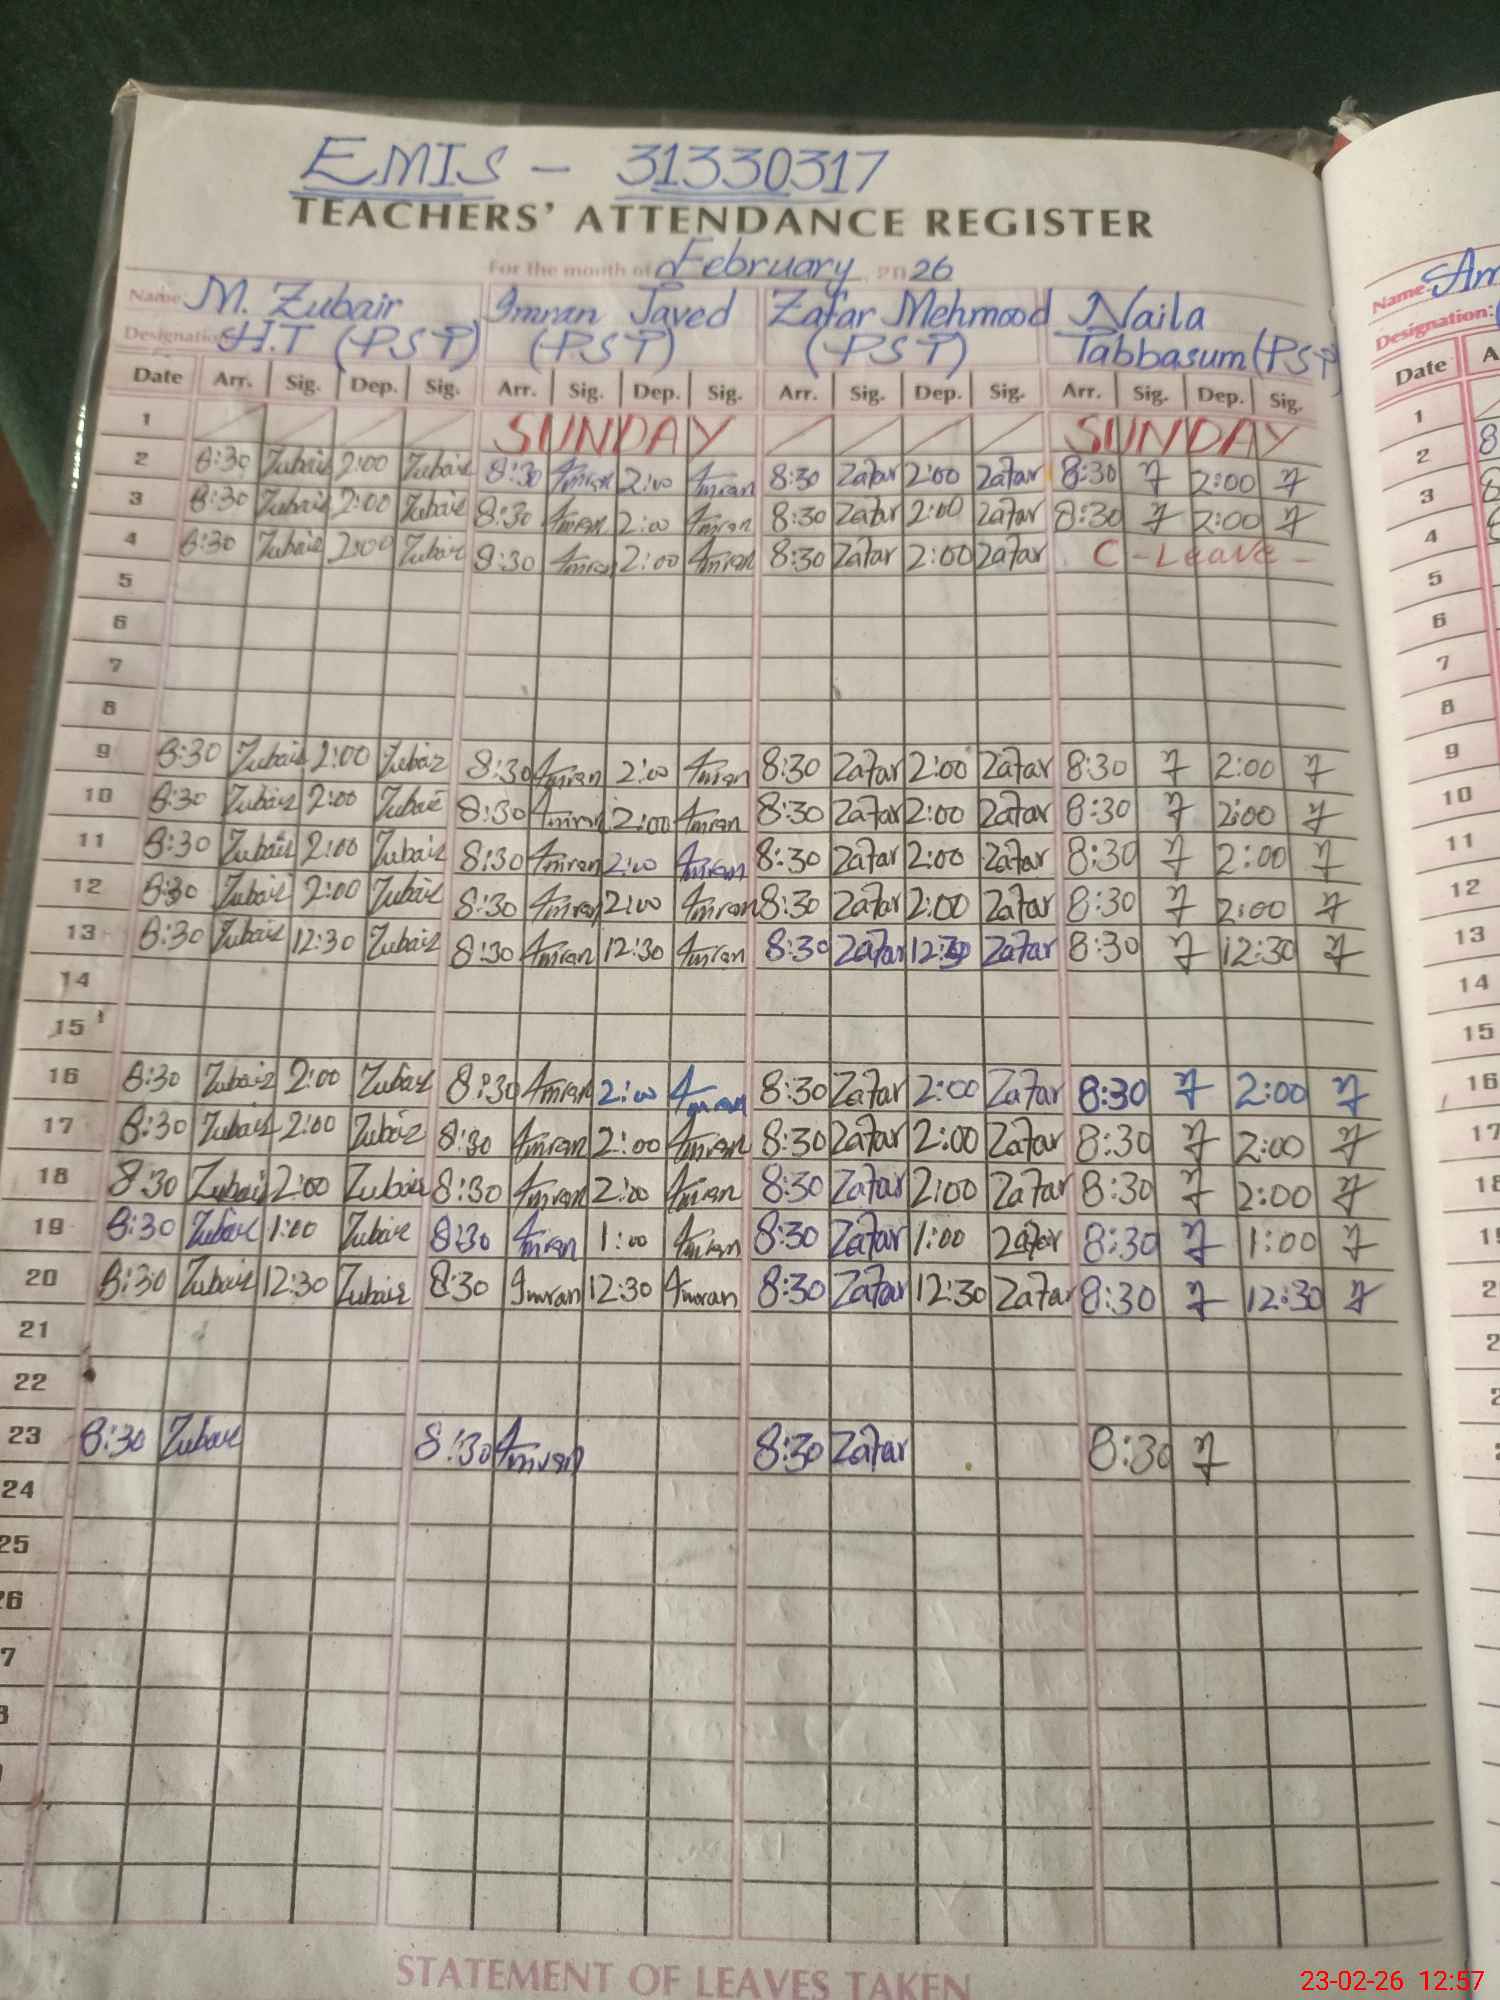 EMIS - 31330317
TEACHERS' ATTENDANCE REGISTER
For the month of February 2026
Name: M. Zubair Imran Javed Zafar Mehmood Naila
Designation: H.T (PST) (PST) (PST) Tabbasum (PST)
Date Arr. Sig. Dep. Sig. Arr. Sig. Dep. Sig. Arr. Sig. Dep. Sig. Arr. Sig. Dep. Sig.
1 SUNDAY SUNDAY
2 8:30 Zubair 2:00 Zubair 8:30 Imran 2:00 Imran 8:30 Zafar 2:00 Zafar 8:30 2:00
3 8:30 Zubair 2:00 Zubair 8:30 Imran 2:00 Imran 8:30 Zafar 2:00 Zafar 8:30 2:00
4 8:30 Zubair 2:00 Zubair 8:30 Imran 2:00 Imran 8:30 Zafar 2:00 Zafar C - Leave -
5
6
7
8
9 8:30 Zubair 2:00 Zubair 8:30 Imran 2:00 Imran 8:30 Zafar 2:00 Zafar 8:30 2:00
10 8:30 Zubair 2:00 Zubair 8:30 Imran 2:00 Imran 8:30 Zafar 2:00 Zafar 8:30 2:00
11 8:30 Zubair 2:00 Zubair 8:30 Imran 2:00 Imran 8:30 Zafar 2:00 Zafar 8:30 2:00
12 8:30 Zubair 2:00 Zubair 8:30 Imran 2:00 Imran 8:30 Zafar 2:00 Zafar 8:30 2:00
13 8:30 Zubair 12:30 Zubair 8:30 Imran 12:30 Imran 8:30 Zafar 12:30 Zafar 8:30 12:30
14
15
16 8:30 Zubair 2:00 Zubair 8:30 Imran 2:00 Imran 8:30 Zafar 2:00 Zafar 8:30 2:00
17 8:30 Zubair 2:00 Zubair 8:30 Imran 2:00 Imran 8:30 Zafar 2:00 Zafar 8:30 2:00
18 8:30 Zubair 2:00 Zubair 8:30 Imran 2:00 Imran 8:30 Zafar 2:00 Zafar 8:30 2:00
19 8:30 Zubair 1:00 Zubair 8:30 Imran 1:00 Imran 8:30 Zafar 1:00 Zafar 8:30 1:00
20 8:30 Zubair 12:30 Zubair 8:30 Imran 12:30 Imran 8:30 Zafar 12:30 Zafar 8:30 12:30
21
22
23 8:30 Zubair 8:30 Imran 8:30 Zafar 8:30
24
25
26
7
STATEMENT OF LEAVES TAKEN
Name: Am
Designation:
Date A
1
2
3
4
5
6
7
8
9
10
11
12
13
14
15
16
17
23-02-26 12:57